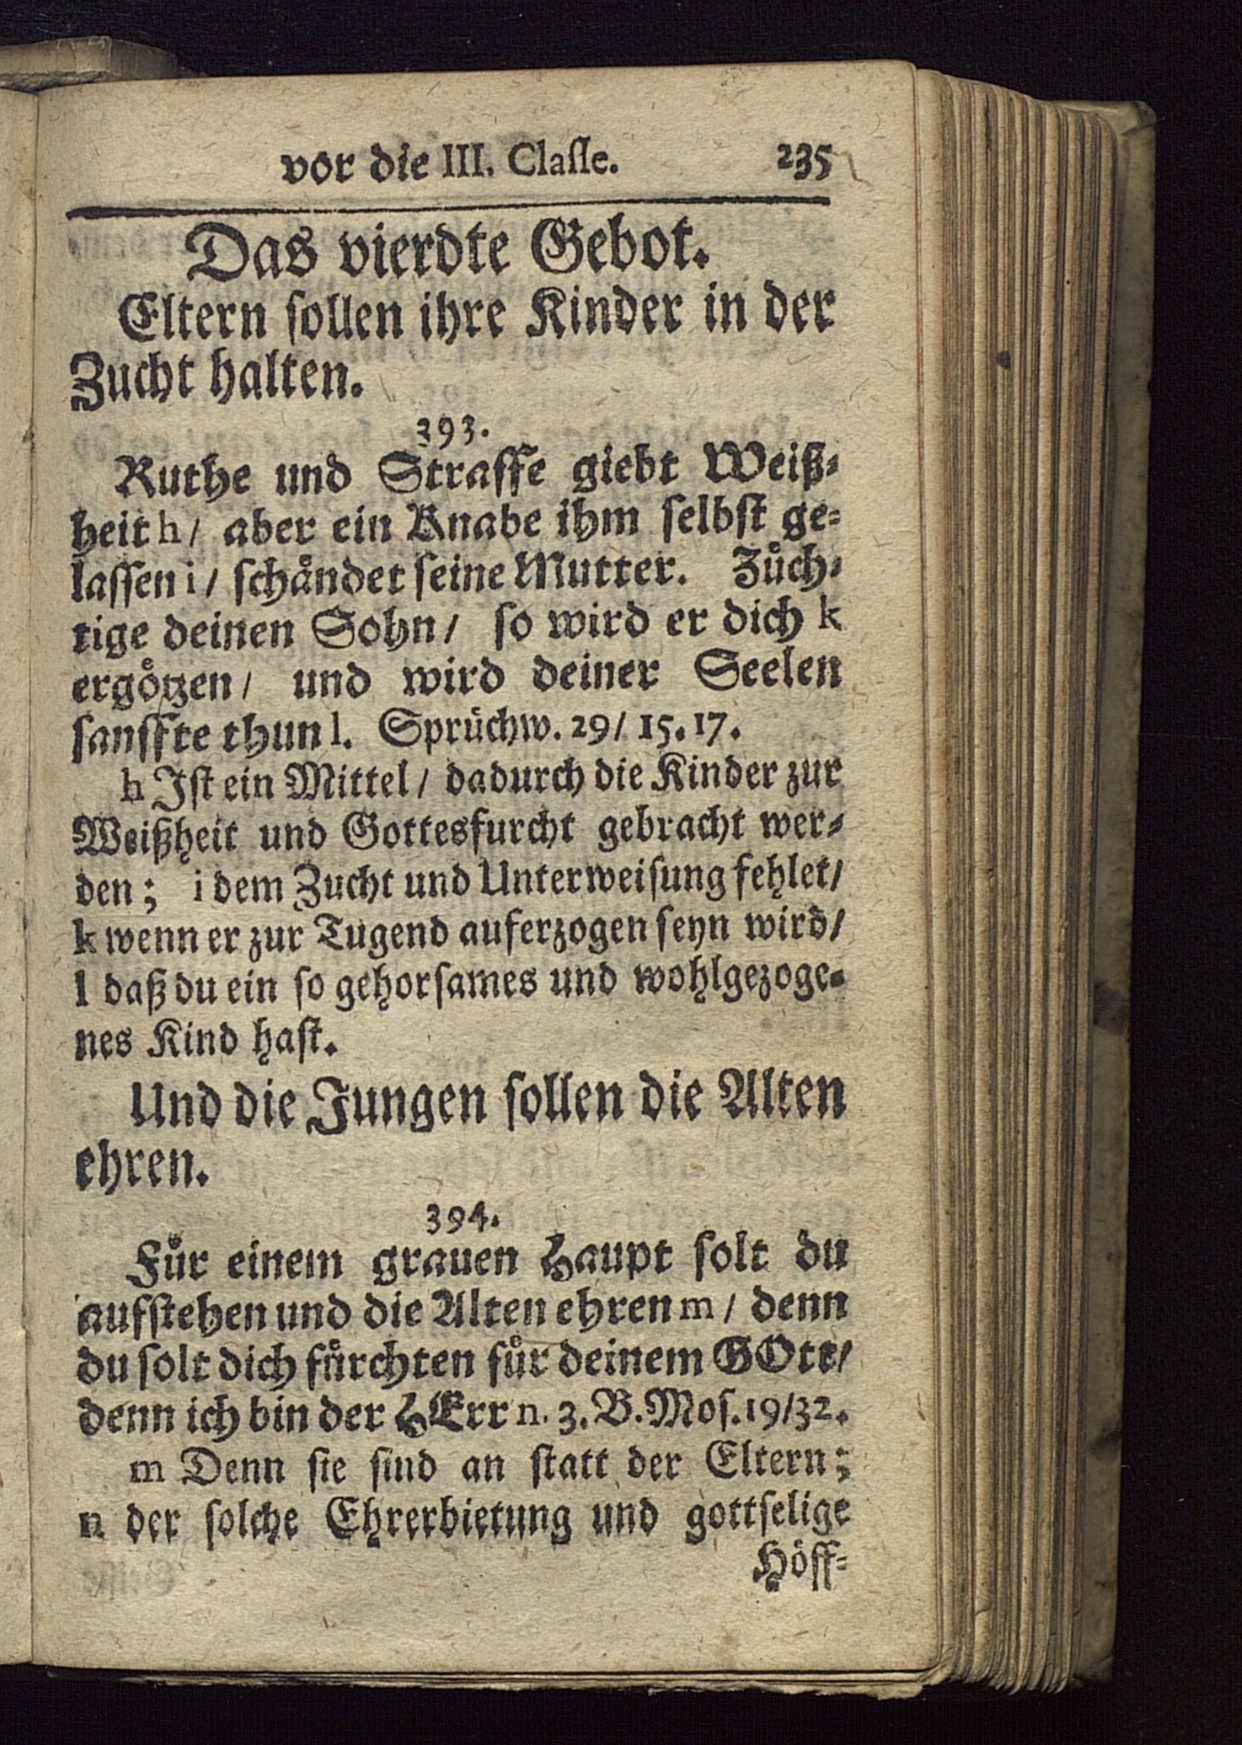 vor die III. Claſſe. 235
Das vierdte Gebot.
Eltern ſollen ihre Kinder in der
Zucht halten.
393.
Ruthe und Straffe giebt Weiß⸗
heit h/ aber ein Knabe ihm ſelbſt ge⸗
laſſen i/ ſchaͤndet ſeine Mutter. Zuͤch⸗
tige deinen Sohn/ ſo wird er dich k
ergoͤtzen/ und wird deiner Seelen
ſanffte thun l. Spruͤchw. 29/ 15. 17.
h Iſt ein Mittel/ dadurch die Kinder zur
Weißheit und Gottesfurcht gebracht wer⸗
den; i dem Zucht und Unterweiſung fehlet/
k wenn er zur Tugend auferzogen ſeyn wird/
l daß du ein ſo gehorſames und wohlgezoge⸗
nes Kind haſt.
Und die Jungen ſollen die Alten
ehren.
394.
Fuͤr einem grauen Haupt ſolt du
aufſtehen und die Alten ehren m/ denn
du ſolt dich fuͤrchten fuͤr deinem GOtt/
denn ich bin der HErr n. 3. B. Moſ. 19/32.
m Denn ſie ſind an ſtatt der Eltern;
n der ſolche Ehrerbietung und gottſelige
Hoͤff⸗